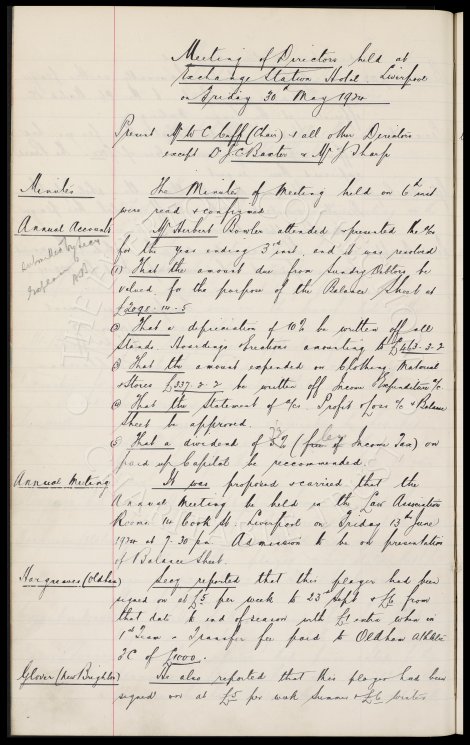 Meeting of Directors held at
Exchange Station Hotel. Liverpool
on Friday 30th May 1924
Present Mr W C Cuff (Chair) & all other Directors
except Dr J C Baxter & Mr J Sharp
Minutes
The Minutes of Meeting held on 6th inst
were read & confirmed
Annual Accounts
Mr Herbert Bowler attended & presented the a/cs
for the year ending 3rd inst. and it was resolved
(1) That the amount due from Sundry Debtors be
valued for the purpose of the Balance Sheet at
£2098-14-5
(2) That a depreciation of 10% be written off all
Stands Hoardings & Erections amounting to £463.3.2
(3) That the amount expended on Clothing Material
& Stores £337.2.2 be written off Income & Expenditure a/c
(4) That the Statement of a/cs. Profit & Loss a/c & Balance
Sheet be approved.
(5) That a dividend of % (Income Tax) on
paid up Capital be recommended.
Annual Meeting
It was proposed & carried that the
Annual Meeting be held in the Law Association
Rooms 14 Cook St. Liverpool on Friday 13th June
1924 at 7-30 pm. Admission to be on presentation
of Balance Sheet.
Hargreaves (Oldham)
Secy reported that this player had been
signed on at £5 per week to 23rd Sept & £6 from
that date to end of season with £1 extra when in
1st Team - Transfer fee paid to Oldham Athletic
FC of £1000.
Glover (New Brighton)
He also reported that this player had been
signed on at £5 per week Summer & £6 winter